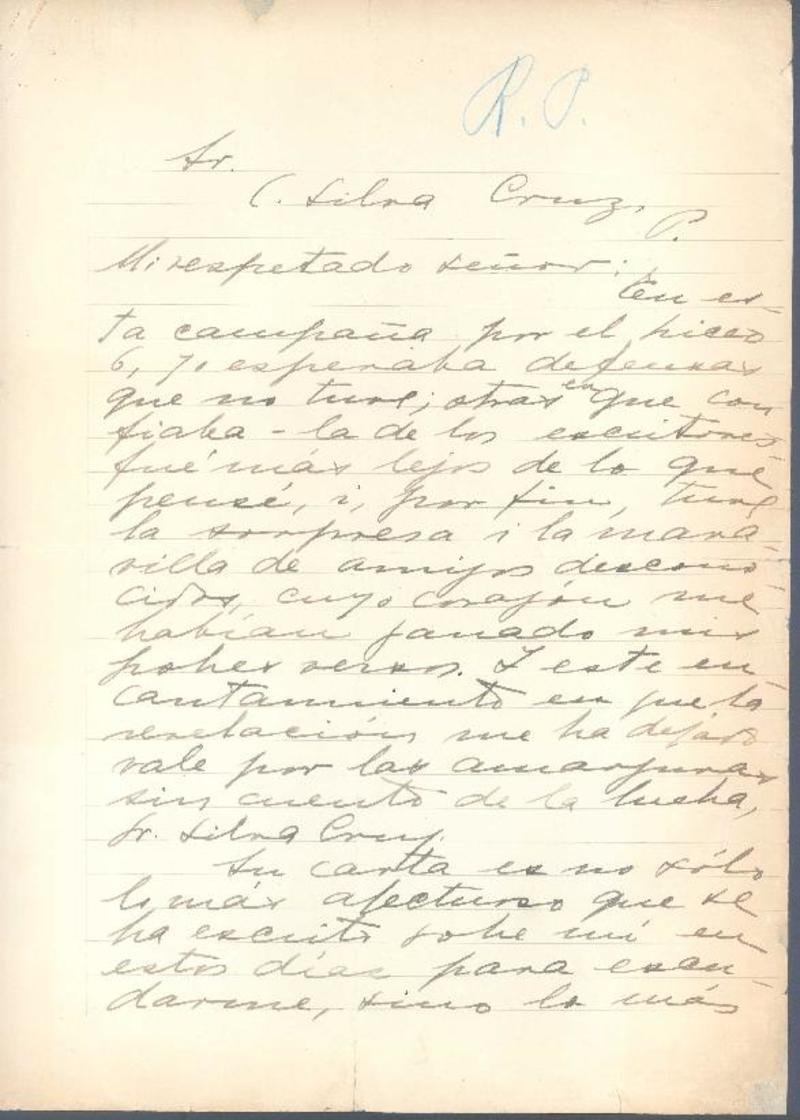 R. P.
Sr.
C. Silva Cruz,
P.
Mi respetado señor:
En es-
ta campaña por el liceo
6, yo esperaba defensas
que no tuve; otras en que con
fiaba - la de los escritores -
fué más lejos de lo que
pensé, i, por fin, tuve
la sorpresa i la mara-
villa de amigos descono-
cidos, cuyo corazón me
habían ganado mis
pobres versos. I este en-
cantamiento en que la
revelación me ha dejado
vale por las amarguras
sin cuento de la lucha,
Sr. Silva Cruz.
Su carta es no sólo
lo más afectuoso que se
ha escrito sobre mí en
estos días para escu-
darme, sino lo más